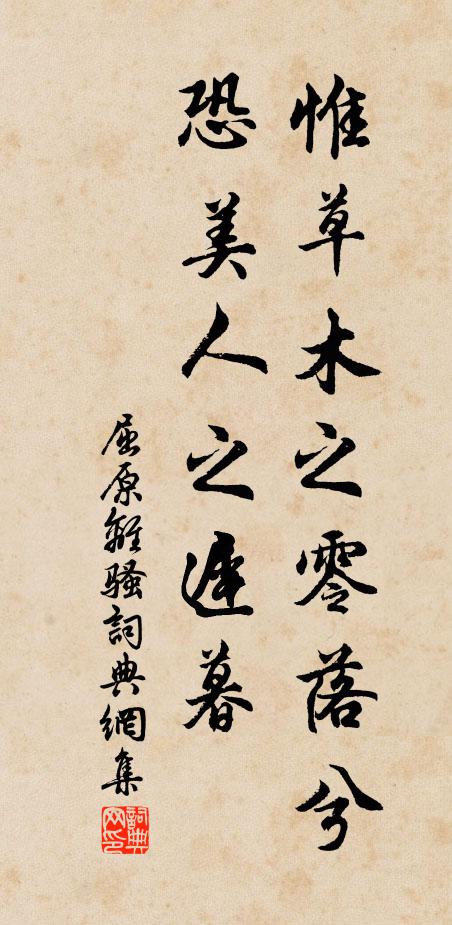 惟草木之零落兮
恐美人之遲暮
屈原離騷詞典網集
詞典网印